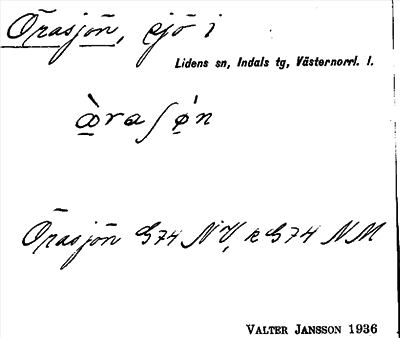 Örasjön, sjö i
Lidens sn, Indals tg, Västernorrl. l.
œ̱̀raʃǿ̱n
Örasjön G74 NV, k G74 NM
VALTER JANSSON 1936